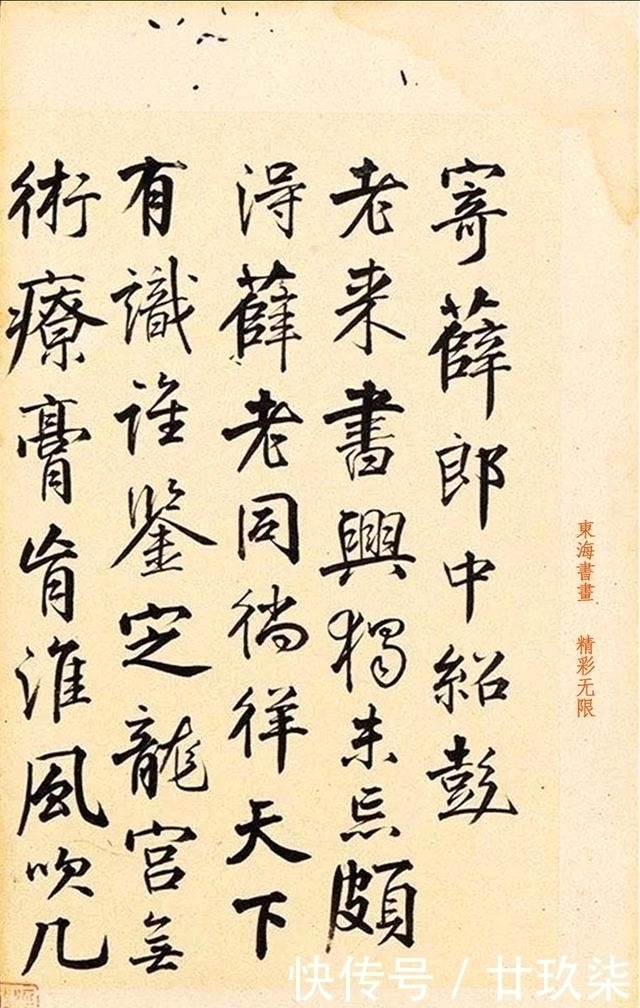 寄薛郎中紹彭
老来書興獨未忘頗
得薛老同徜徉天下
有識誰鑒定龍宮無
術療膏肓淮風吹几
東海書畫 精彩无限
快传号/廿玖柒